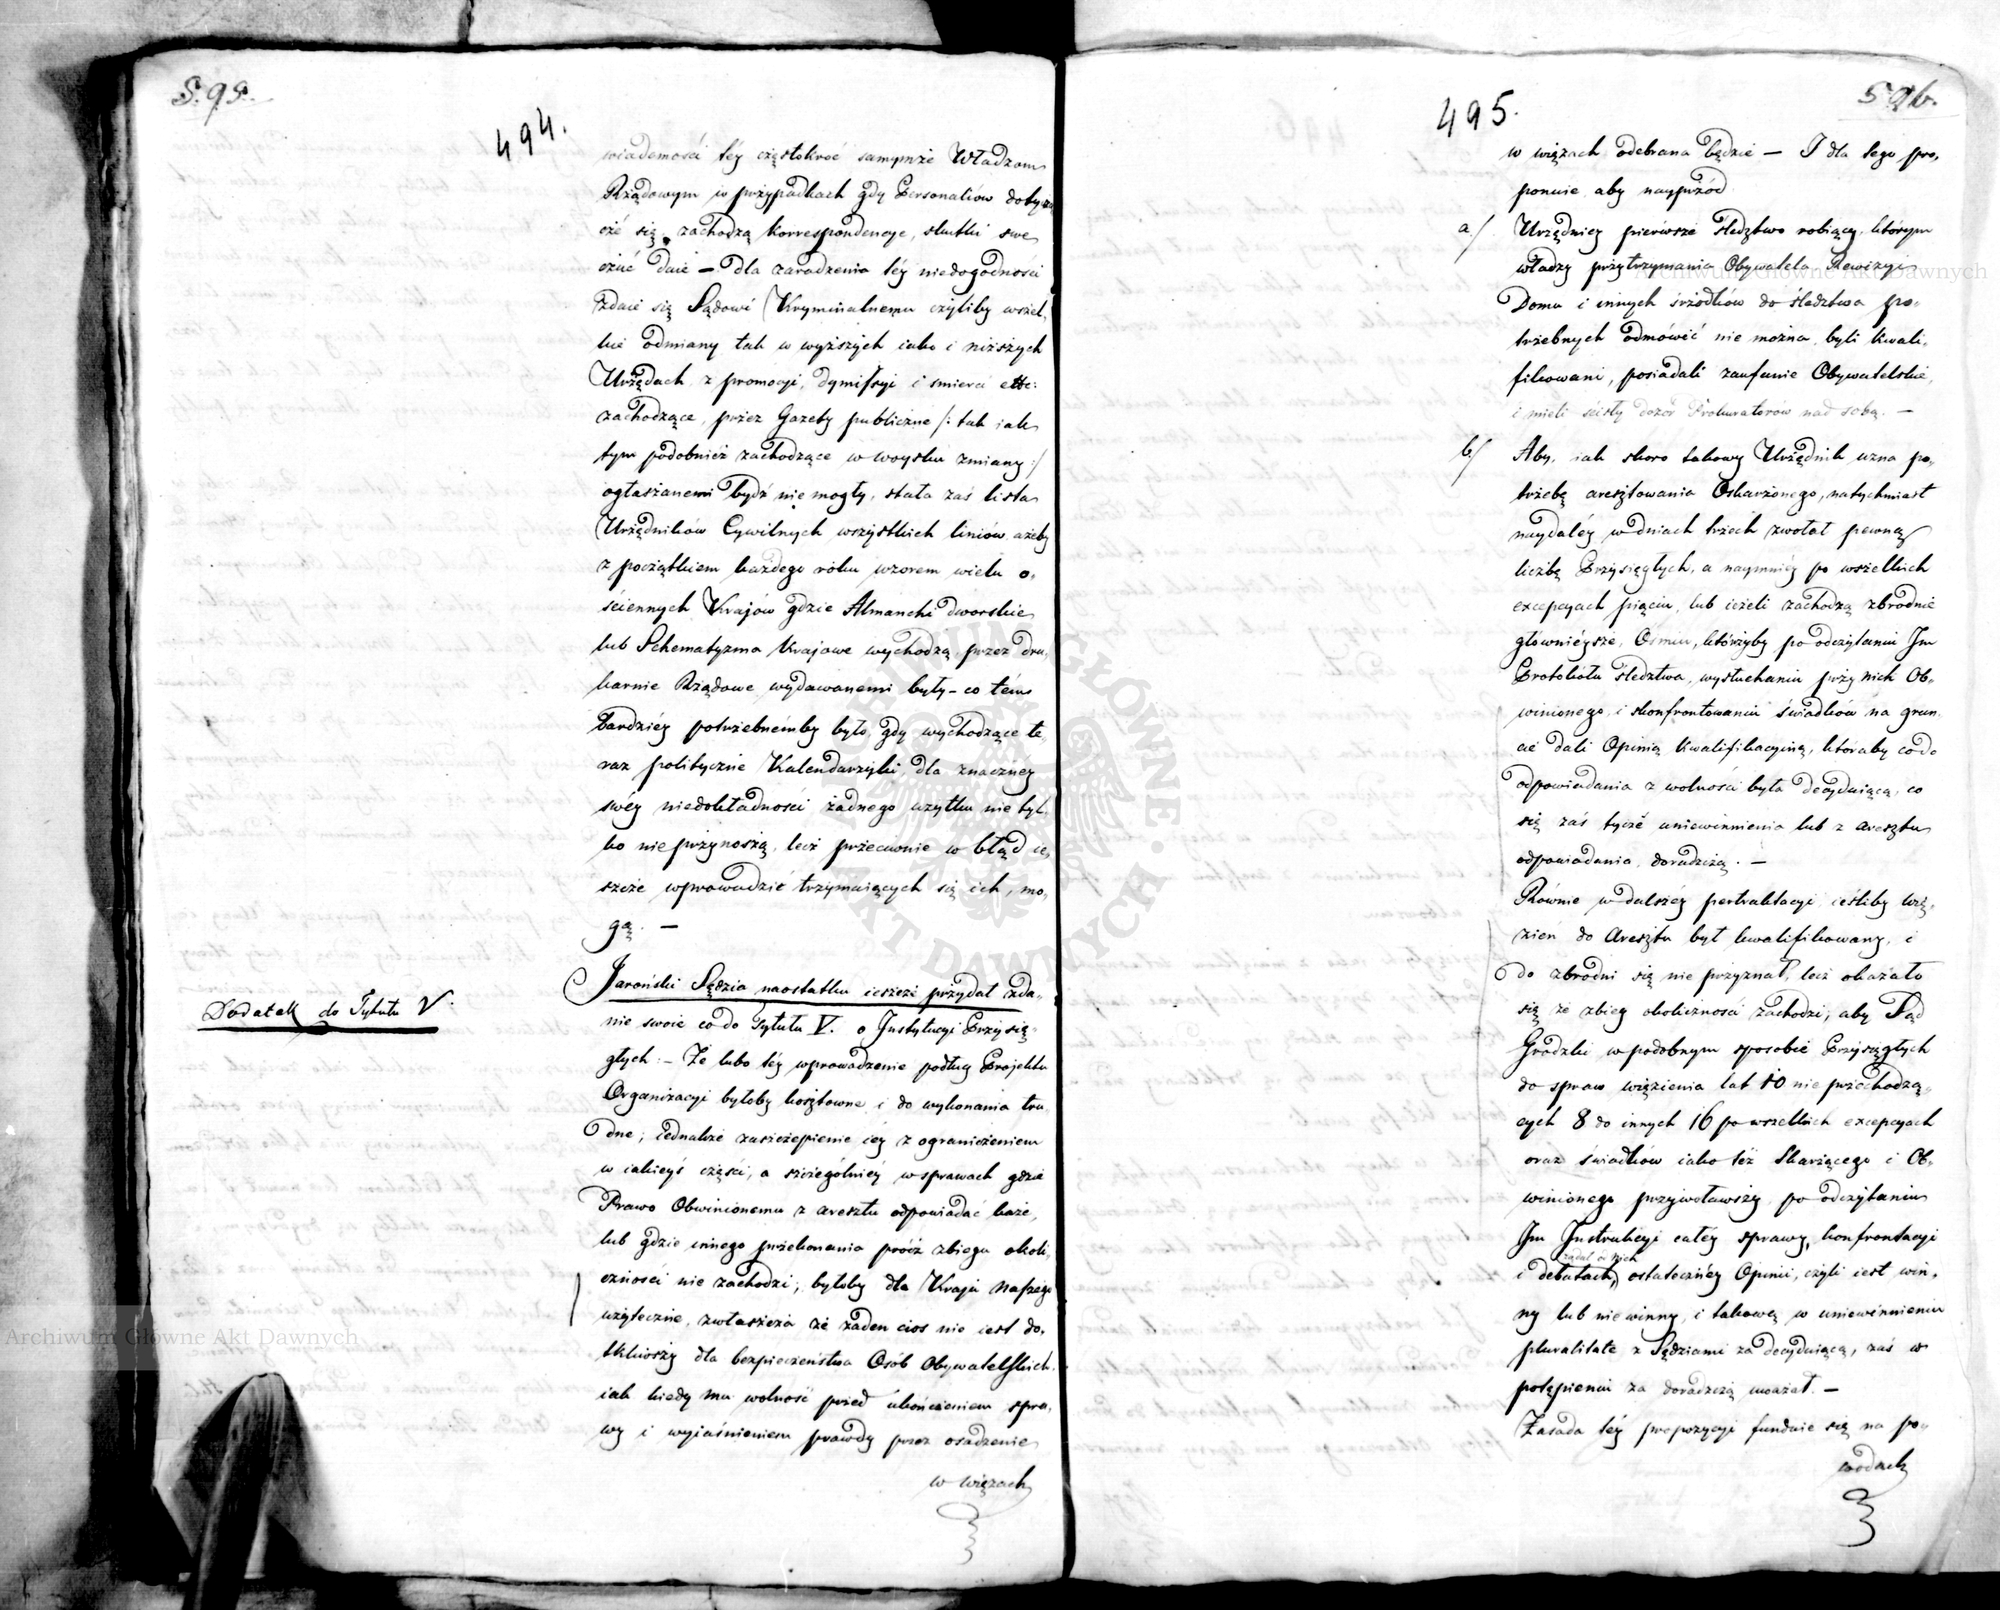 595.
494.
wiadomości téy częstokroć samymże Władzom
Rządowym w przypadkach gdy Personaliów dotyczą
cżé się, zachodzą korrespondencye, skutki swe
cżuć daie — dla zaradzenia téy niedogodności
zdaie się Sądowi Kryminalnemu czyliby wszel,
kie odmiany tak w wyższych iako i niższych
Urzędach z promocyi, dymissyi i smierci etc:
zachodzące, przez Gazety publiczne /: tak iak
tym podobnież zachodzące w woysku zmiany :/
ogłaszanemi bydź nie mogły, stała zaś lista
Urzędników Cywilnych wszystkich liniów ażeby
z początkiem każdego roku wzorem wielu o,
ściennych Kraiów gdzie Almanchi dworskie
lub Schematyzma Kraiowe wychodzą, przez dru,
karnie Rządowe wydawanemi były — co tém
bardziéy potrzebnémby było, gdy wychodzące te,
raz polityczne Kalendarzyki, dla znacznéy
swéy niedokładności żadnego użytku nie tyl,
ko nie przynoszą, lecż przeciwnie w błąd ie,
szcże wprowadzić trzymaiących się ich, mo,
gą. —
Dodatek do Tytułu V.
Jaroński Sędzia naostatku ieszcze przydał zda,
nie swoie co do Tytułu V. o Instytucyi Przysię,
głych. — Że lubo téy wprowadzenie podług Projektu
Organizacyi byłoby kosztowne i do wykonania tru,
dne; iednakże zasczepienie iéy z ograniczeniem
w iakieyś części, a szczególniéy w sprawach gdzie
Prawo Obwinionemu z aresztu odpowiadać każe,
lub gdzie innego przekonania prócz zbiegu okoli,
czności nie zachodzi; byłoby dla Kraju naszego
użyteczne, zwłaszcza że żaden cios nie iest do,
tkliwszy dla bezpieczeństwa Osób Obywatelskich.
iak kiedy ma wolność przed ukończeniem spra,
wy i wyiaśnieniem prawdy przez osadzenie
w więzach
596.
495.
w więzach odebrana będzie — I dla tego pro,
ponuie aby nayprzód
a/ Urzędnicy pierwsze śledztwo robiący, którym
władzy przytrzymania Obywatela Rewizyi
Domu i innych środków do śledztwa po,
trzebnych odmówić nie można, byli kwali,
fikowani, posiadali zaufanie Obywatelskie,
i mieli ścisły dozór Prokuratorów nad sobą. —
b/ Aby, iak skoro takowy Urzędnik uzna po,
trzebę aresztowania Oskarżonego, natychmiast
naydaléy w dniach trzech zwołał pewną
liczbę Przysięgłych, a naymniéy po wszelkich
excepcyach pięciu, lub ieżeli zachodzą zbrodnie
główniéysze, Ośmiu, którzyby po odczytaniu Im
Protokółu śledztwa, wysłuchaniu przy nich Ob,
winionego i skonfrontowaniu świadków na grun,
cie dali Opinią kwalifikacyiną, któraby co do
odpowiadania z wolności była decyduiącą, co
się zaś tycżé uniewinnienia lub z aresztu
odpowiadania, doradczą. —
Równie w dalszéy pertraktacyi ieśliby wię,
zien do Aresztu był kwalifikowany, i
do zbrodni się nie przyznał, lecz okazało
się że zbieg okoliczności zachodzi, aby Sąd
Grodzki w podobnym sposobie Przysięgłych
do spraw więzienia lat 10 nie przechodzą,
cych 8 do innych 16 po wszelkich excepcyach
oraz świadków iako téż Skarżącego i Ob,
winionego przywoławszy, po odczytaniu
Im Instrukcyi całéy sprawy, konfrontacyi
żądał od nich
i debatach, ostatecznéy Opinii, czyli iest win,
ny lub niewinny, i takową w uniewinnieniu
pluralitate z Sędziami za decyduiącą, zaś w
potępieniu za doradczą uważał. —
Zasada téy propozycyi funduie się na po,
wodach